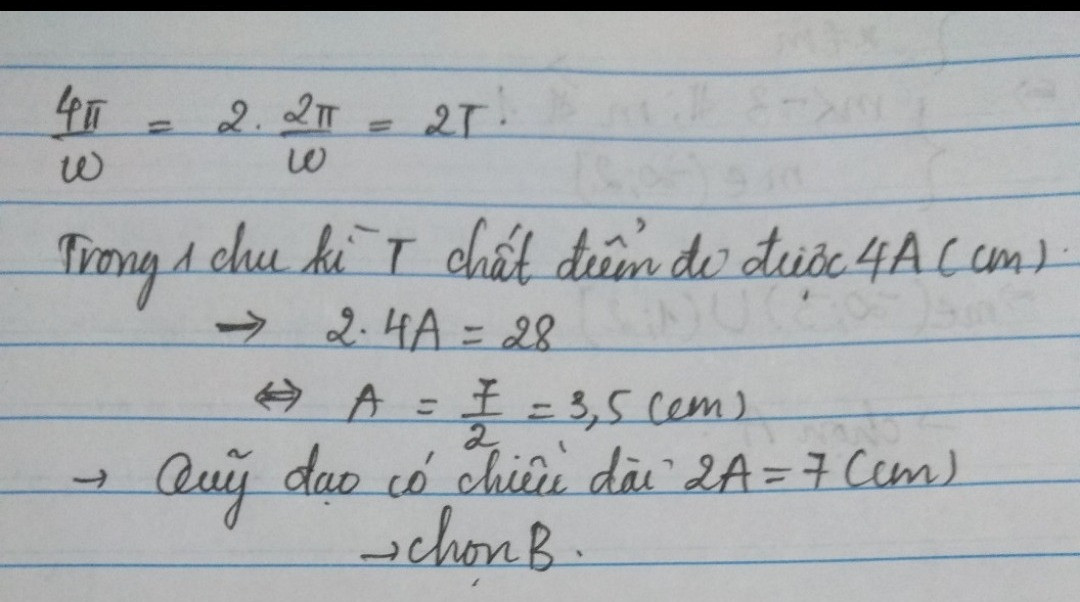 4π/ω = 2. 2π/ω = 2T.
Trong 1 chu kì T chất điểm đi được 4A (cm).
→ 2. 4A = 28
⇔ A = 7/2 = 3,5 (cm)
→ Quỹ đạo có chiều dài 2A = 7 (cm)
→ chọn B.